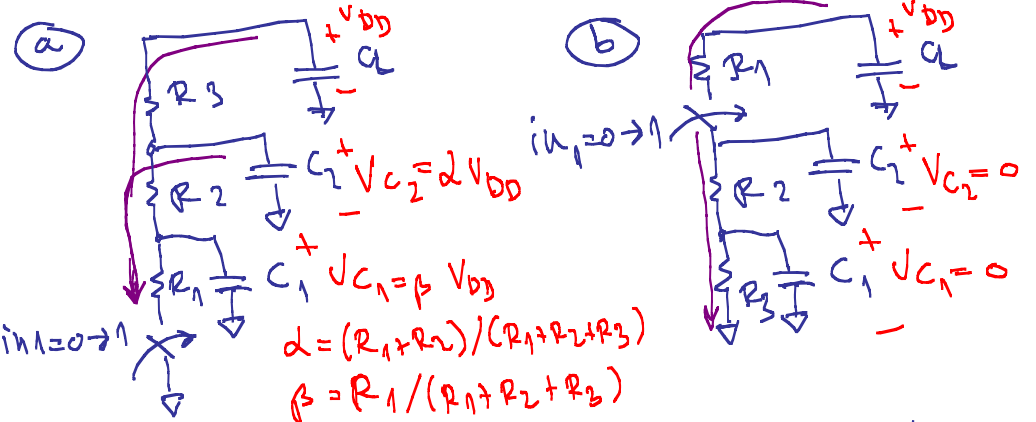 a
+ VDD
CL
−
R3
C2
+
VC2 = α VDD
−
R2
C1
+
VC1 = β VDD
R1
in1=0→1
α = (R1+R2)/(R1+R2+R3)
β = R1/(R1+R2+R3)
b
+ VDD
CL
−
R1
in1=0→1
C2
+
VC2 = 0
−
R2
C1
+
VC1 = 0
−
R3